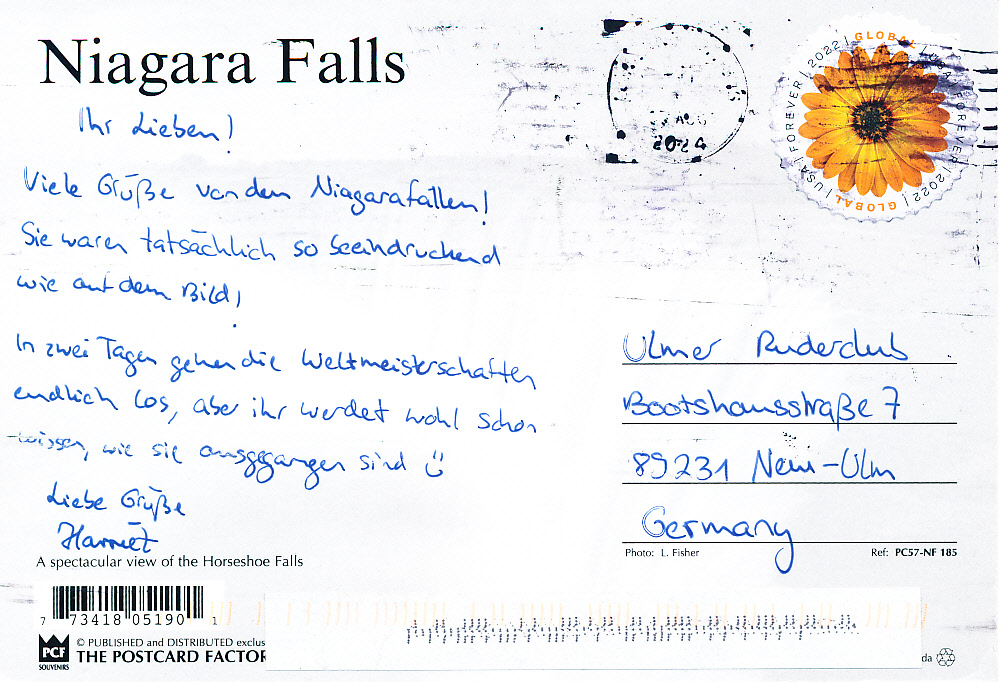 Niagara Falls
Ihr Lieben!
Viele Grüße von den Niagarafällen!
Sie waren tatsächlich so beeindruckend
wie auf dem Bild!
In zwei Tagen gehen die Weltmeisterschaften
endlich los, aber ihr werdet wohl schon
wissen, wie sie ausgegangen sind
Liebe Grüße
Harriet
A spectacular view of the Horseshoe Falls
7 73418 05190 1
PCF
SOUVENIRS
© PUBLISHED and DISTRIBUTED exclus
THE POSTCARD FACTOR
2024
GLOBAL | USA | FOREVER | 2022 | GLOBAL | USA | FOREVER | 2022 |
Ulmer Ruderclub
Bootshausstraße 7
89231 Neu-Ulm
Germany
Photo: L. Fisher
Ref: PC57-NF 185
da